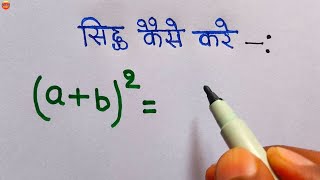 सिद्ध कैसे करे -:
(a+b)² =